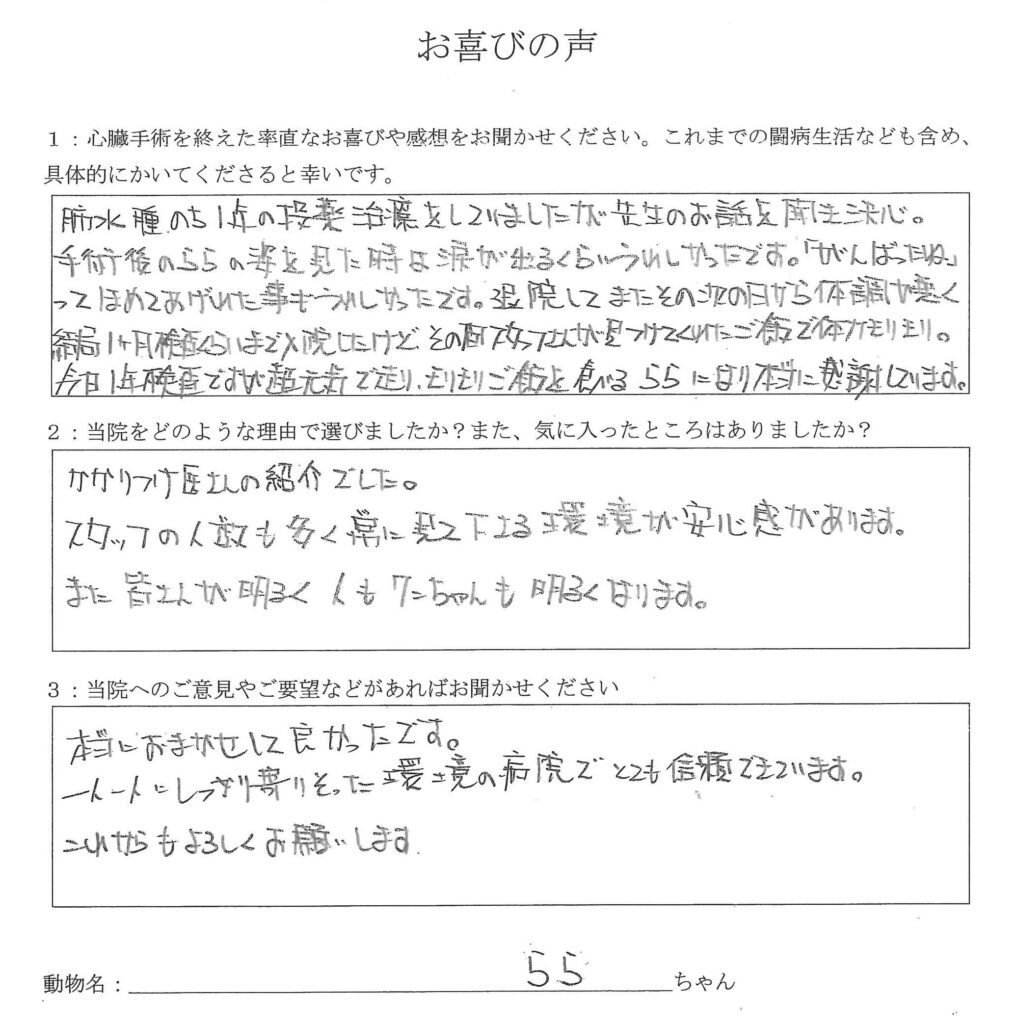 お喜びの声
１：心臓手術を終えた率直なお喜びや感想をお聞かせください。これまでの闘病生活なども含め、
具体的にかいてくださると幸いです。
肺水腫のち1年の投薬治療をしていましたが先生のお話を聞き決心。
手術後のららの姿を見た時は涙が出るくらいうれしかったです。「がんばったね」
ってほめてあげれた事もうれしかったです。退院してまたその次の日から体調が悪く
結局1ヶ月検査くらいまで入院したけどその間スタッフさんが見つけてくれたご飯で体力モリモリ。
今日1年検査ですが超元気で走り、モリモリご飯を食べるららになり本当に感謝しています。
２：当院をどのような理由で選びましたか？また、気に入ったところはありましたか？
かかりつけ医さんの紹介でした。
スタッフの人数も多く常に見て下さる環境が安心感があります。
また皆さんが明るく人もワンちゃんも明るくなります。
３：当院へのご意見やご要望などがあればお聞かせください
本当におまかせして良かったです。
一人一人にしっかり寄りそった環境の病院でとても信頼できています。
これからもよろしくお願いします
動物名：ららちゃん